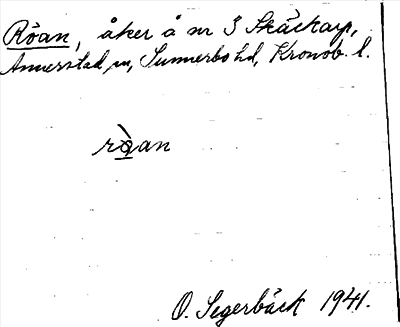 Röan, åker å nr 3 Skäckarp,
Annerstad sn, Sunnerbo hd, Kronob. l.
ròan
O. Segerbäck 1941.